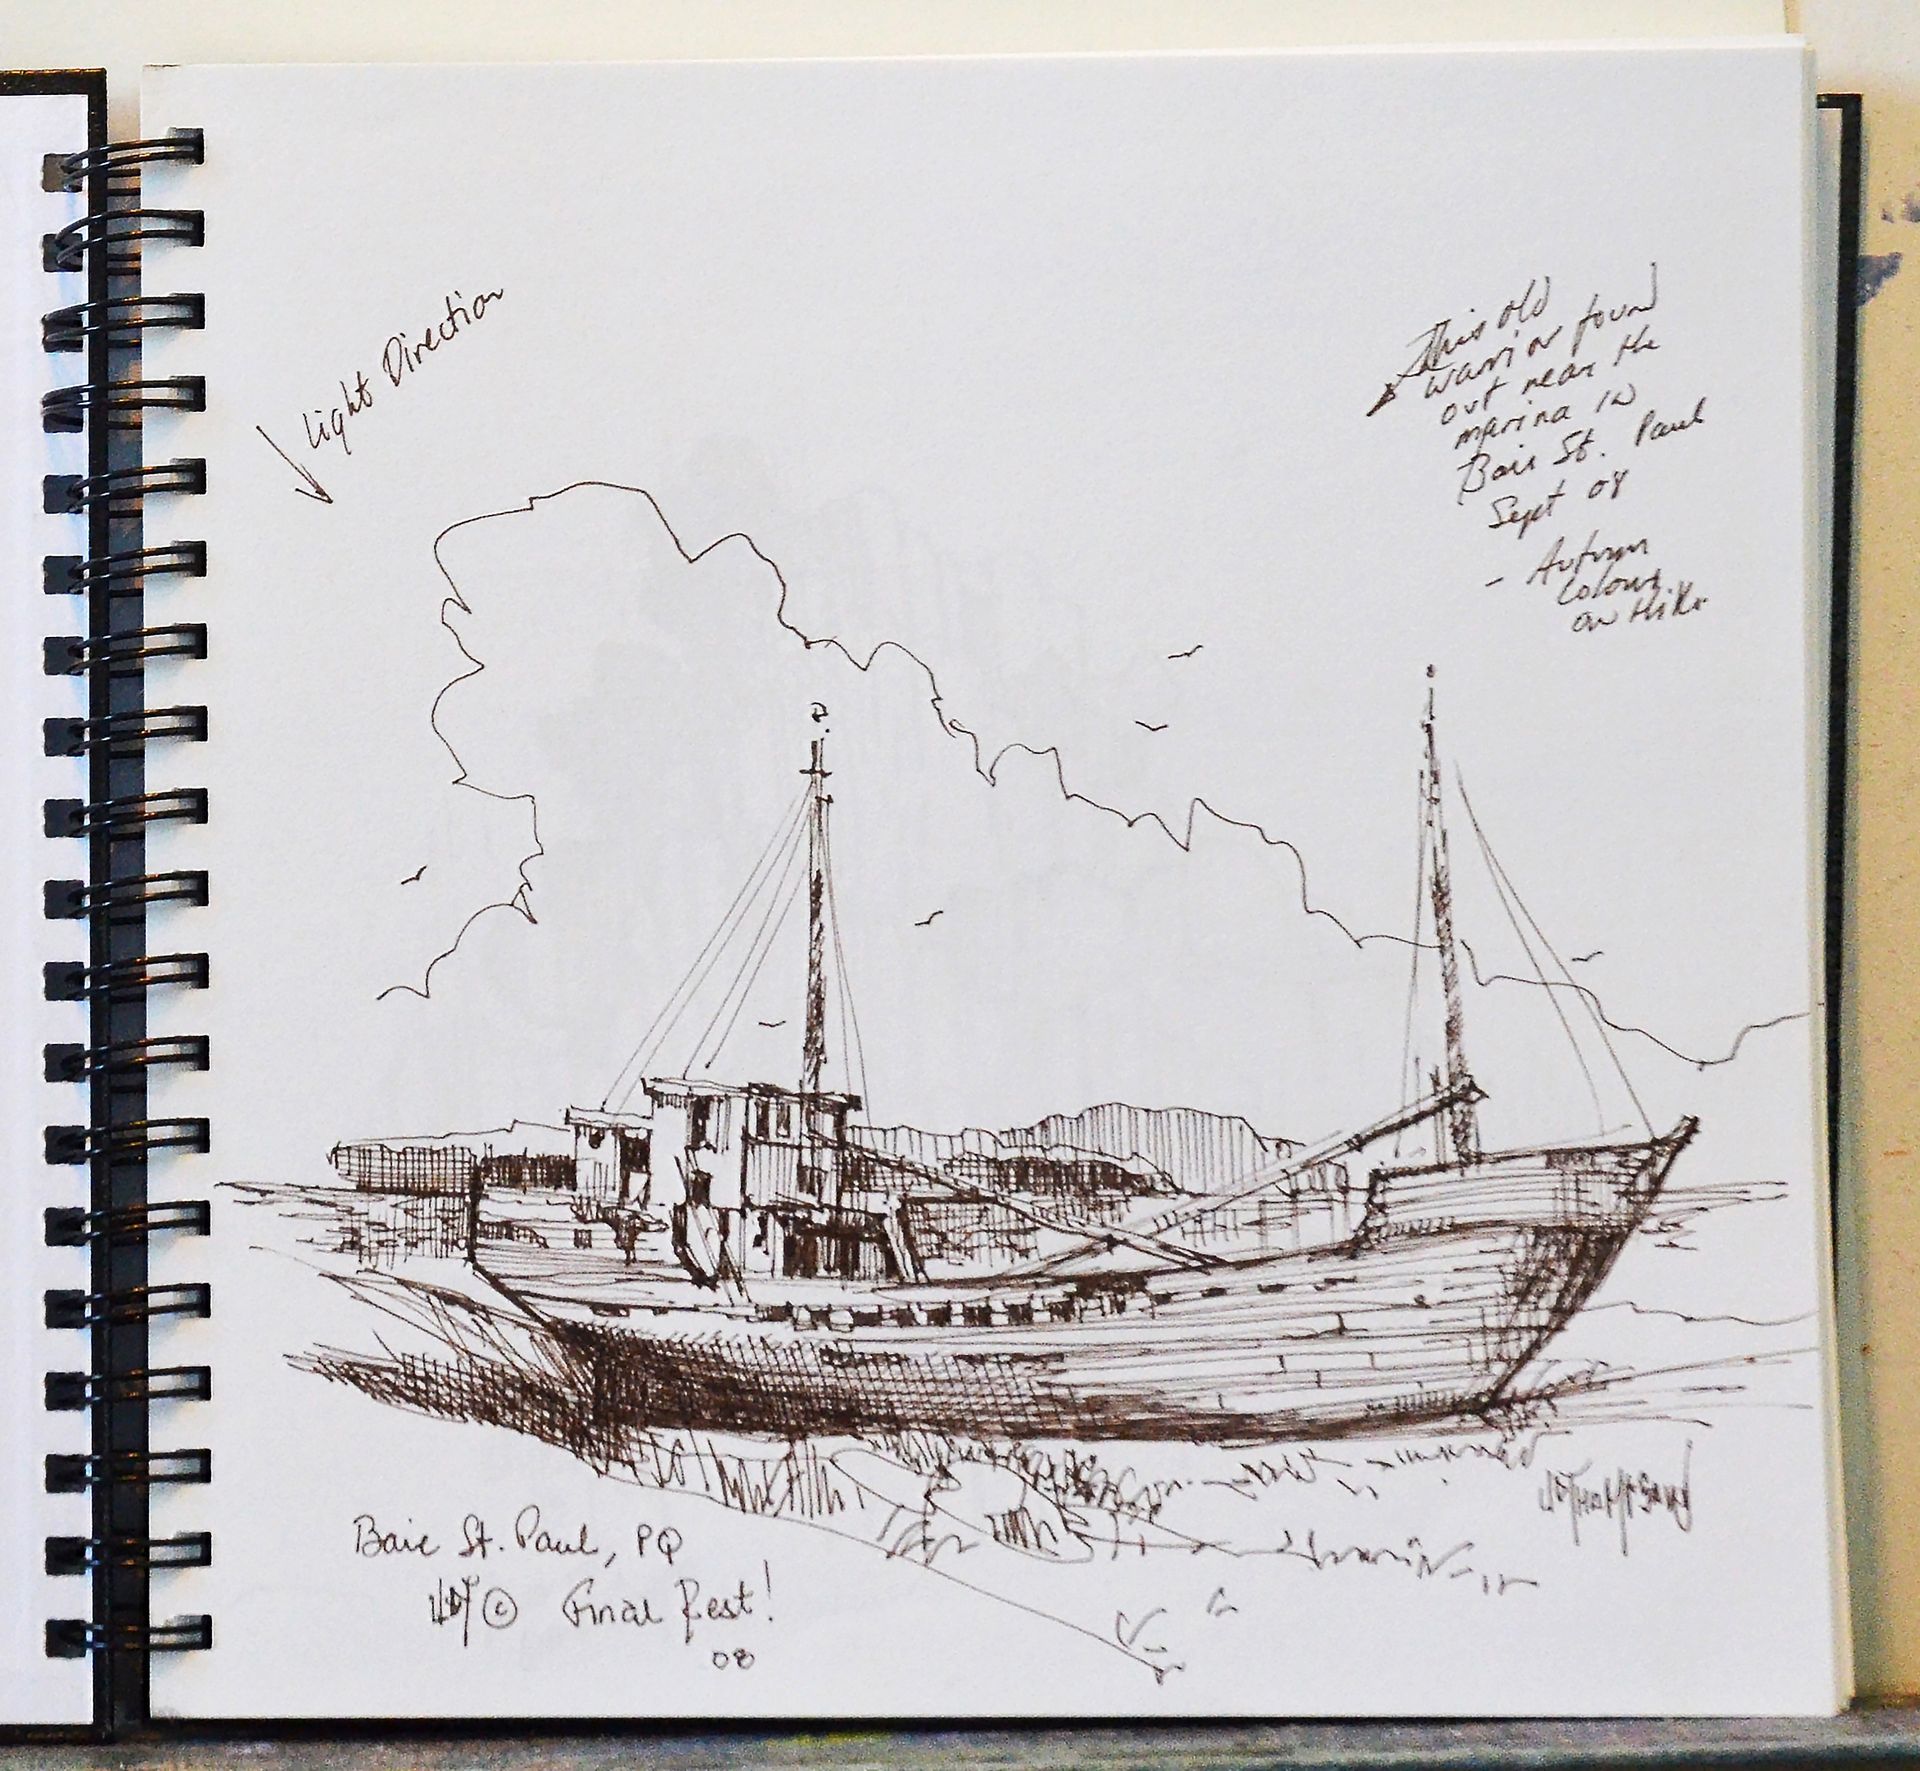 Light Direction
This old
warrior found
out near the
marina in
Baie St. Paul
Sept 08
- Autumn
Colours
on Hills
Baie St. Paul, PQ
© Final Rest!
08